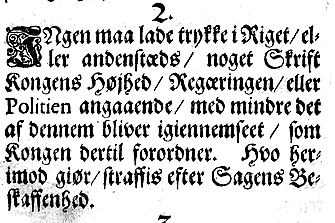 2.
INgen maa lade trykke i Riget/ el-
ler andenstæds/ noget Skrift
Kongens Højhed/ Regæringen/ eller
Politien angaaende/ med mindre det
af dennem bliver igiennemseet/ som
Kongen dertil forordner. Hvo her-
imod giør/ straffis efter Sagens Be-
skaffenhed.